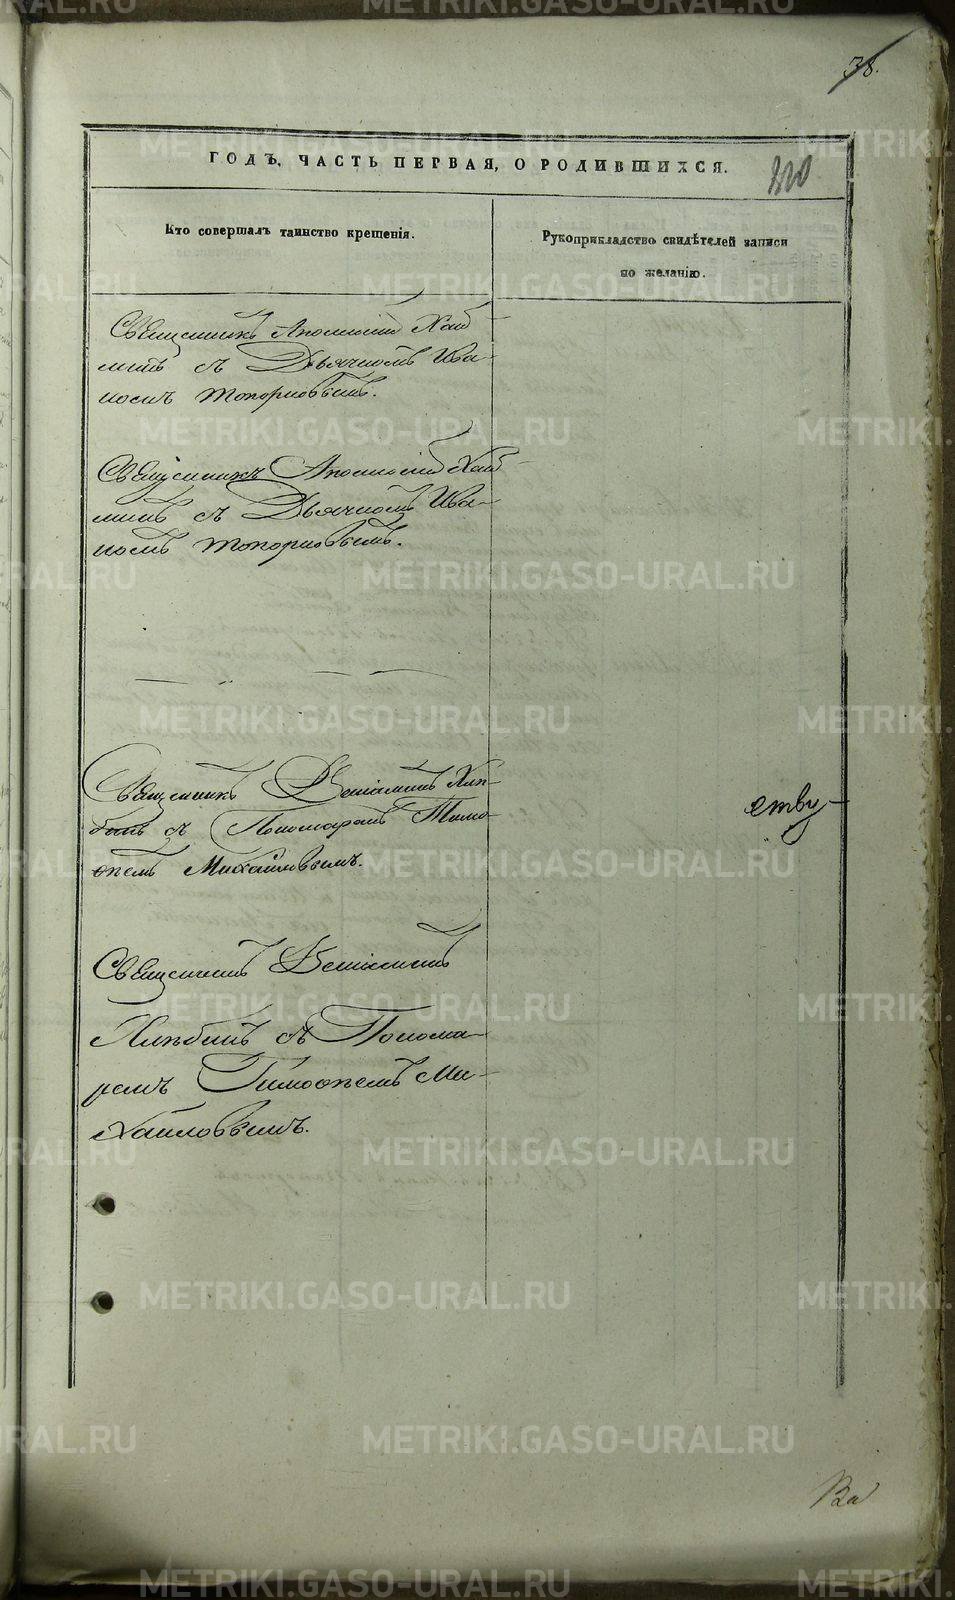 38.
ГОДЪ, ЧАСТЬ ПЕРВАЯ, О РОДИВШИХСЯ.
Кто совершалъ таинство крещенія.
Рукоприкладство свидѣтелей записи
по желанію.
Священникъ
съ Дьячкомъ Ива-
номъ Топорковымъ.
Священникъ
съ Дьячкомъ Ива-
номъ Топорковымъ.
Священникъ Веніаминъ Хлѣ-
бинъ съ Пономаремъ Тимо-
ѳеемъ Михайловымъ.
ству-
Священникъ Веніаминъ
Хлѣбинъ съ Понома-
ремъ Тимоѳеемъ Ми-
хайловымъ.
METRIKI.GASO-URAL.RU